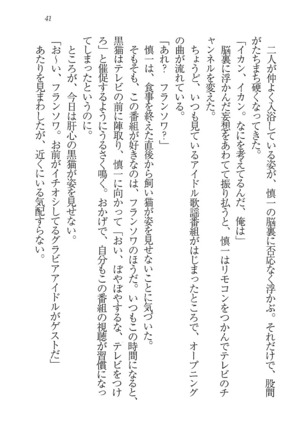 41
二人が仲よく入浴している姿が、慎一の脳裏に否応なく浮かぶ。それだけで、股間
がたちまち硬くなってきた。
「イカン、イカン。なにを考えてるんだ、俺は」
脳裏に浮かんだ妄想をあわてて振り払うと、慎一はリモコンをつかんでテレビのチ
ャンネルを変えた。
ちょうど、いつも見ているアイドル歌謡番組がはじまったところで、オープニング
の曲が流れている。
「あれ？　フランソワ？」
慎一は、食事を終えた直後から飼い猫が姿を見せないことに気づいた。
そもそも、この番組が好きなのは、フランソワのほうだ。いつもこの時間になると、
黒猫はテレビの前に陣取り、慎一に向かって「おい、ぼやぼやするな、テレビをつけ
ろ」と催促するようにうるさく鳴く。おかげで、自分もこの番組の視聴が習慣になっ
てしまったというのに。
ところが、今日は肝心の黒猫が姿を見せない。
「お～い、フランソワ。お前がイチオシしてるグラビアアイドルがゲストだ」
あたりを見まわしたが、近くにいる気配すらない。